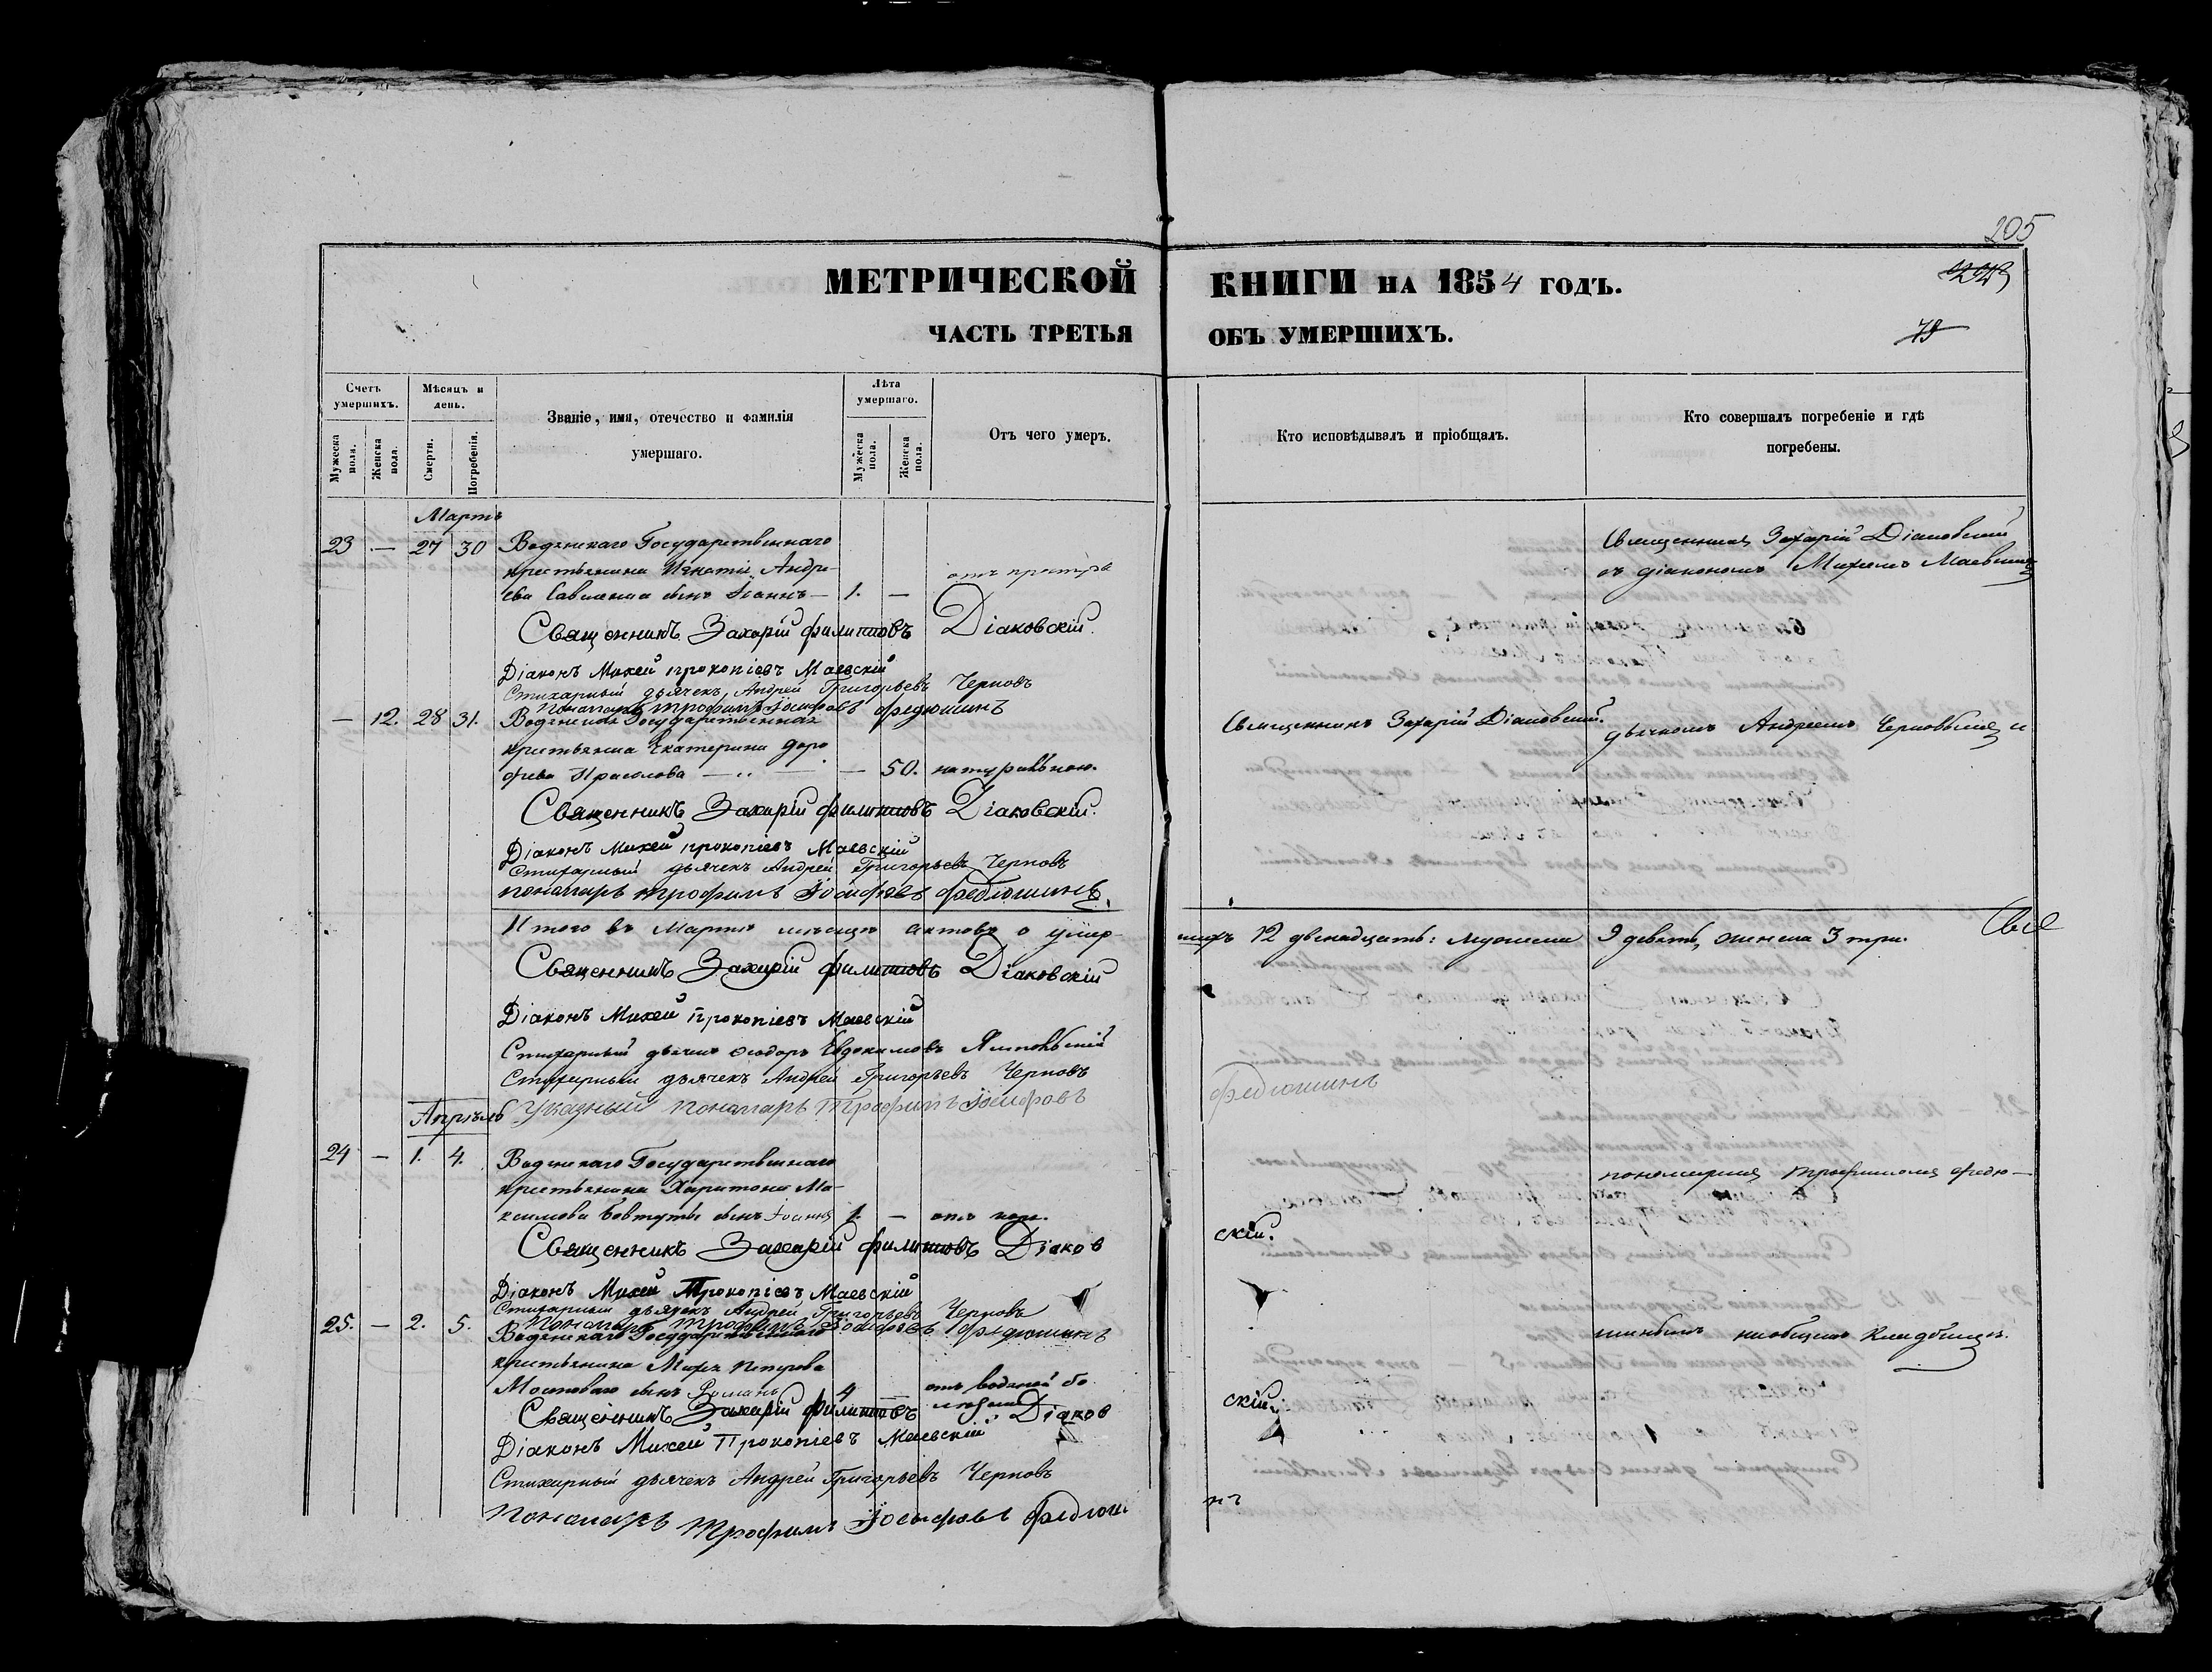 205
МЕТРИЧЕСКОЙ КНИГИ НА 1854 ГОДЪ.
ЧАСТЬ ТРЕТЬЯ ОБЪ УМЕРШИХЪ.
Счетъ умершихъ.
Мужеска пола.
Женска пола.
Мѣсяцъ и день.
Смерти.
Погребенія.
Званіе, имя, отечество и фамилія умершаго.
Лѣта умершаго.
Мужеска пола.
Женска пола.
Отъ чего умеръ.
Кто исповѣдывалъ и пріобщалъ.
Кто совершалъ погребеніе и гдѣ погребены.
Мартъ
23 — 27 30 Водянскаго Государственнаго
крестьянина Игнатія Андре-
ева сынъ Іоаннъ — 1. —
Священникъ Захарій Діаковскій
съ діакономъ Михеемъ Маевскимъ
Священникъ Захарій Филиповъ Діаковскій.
Діаконъ Михей Прокопіевъ Маевскій
Стихарный дьячекъ Андрей Григорьевъ Черновъ
Пономарь Трофимъ Іосифовъ Федюшинъ
— 12. 28 31. Водянская Государственная
крестьянка Екатерина Доро-
феева — — 50. натурально.
Священникъ Захарій Діаковскій.
дьячкомъ Андреемъ Черновымъ и
Священникъ Захарій Филиповъ Діаковскій.
Діаконъ Михей Прокопіевъ Маевскій
Стихарный дьячекъ Андрей Григорьевъ Черновъ
Пономарь Трофимъ Іосифовъ Федюшинъ.
Итого въ Мартѣ мѣсяцѣ актовъ о умер-
шихъ 12 двенадцать: мужеска 9 девять, женска 3 три.
Священникъ Захарій Филиповъ Діаковскій
Діаконъ Михей Прокопіевъ Маевскій
Стихарный дьячекъ Ѳеодоръ Евдокимовъ
Стихарный дьячекъ Андрей Григорьевъ Черновъ
Указный Пономарь Трофимъ Іосифовъ Федюшинъ
Апрѣль
24 — 1. 4. Водянскаго Государственнаго
крестьянина Харитона Ма-
ксимова сынъ Іоаннъ 1. —
пономаремъ Трофимомъ Федю-
Священникъ Захарій Филиповъ Діаковскій.
Діаконъ Михей Прокопіевъ Маевскій
Стихарный дьячекъ Андрей Григорьевъ Черновъ
Пономарь Трофимъ Іосифовъ Федюшинъ
25. — 2. 5. Водянскаго Государственнаго
крестьянина Михея Петрова
сынъ Романъ 4 — отъ водяной бо-
шинымъ на общемъ кладбищѣ.
Священникъ Захарій Филиповъ Діаковскій.
Діаконъ Михей Прокопіевъ Маевскій
Стихарный дьячекъ Андрей Григорьевъ Черновъ
Пономарь Трофимъ Іосифовъ Федюши